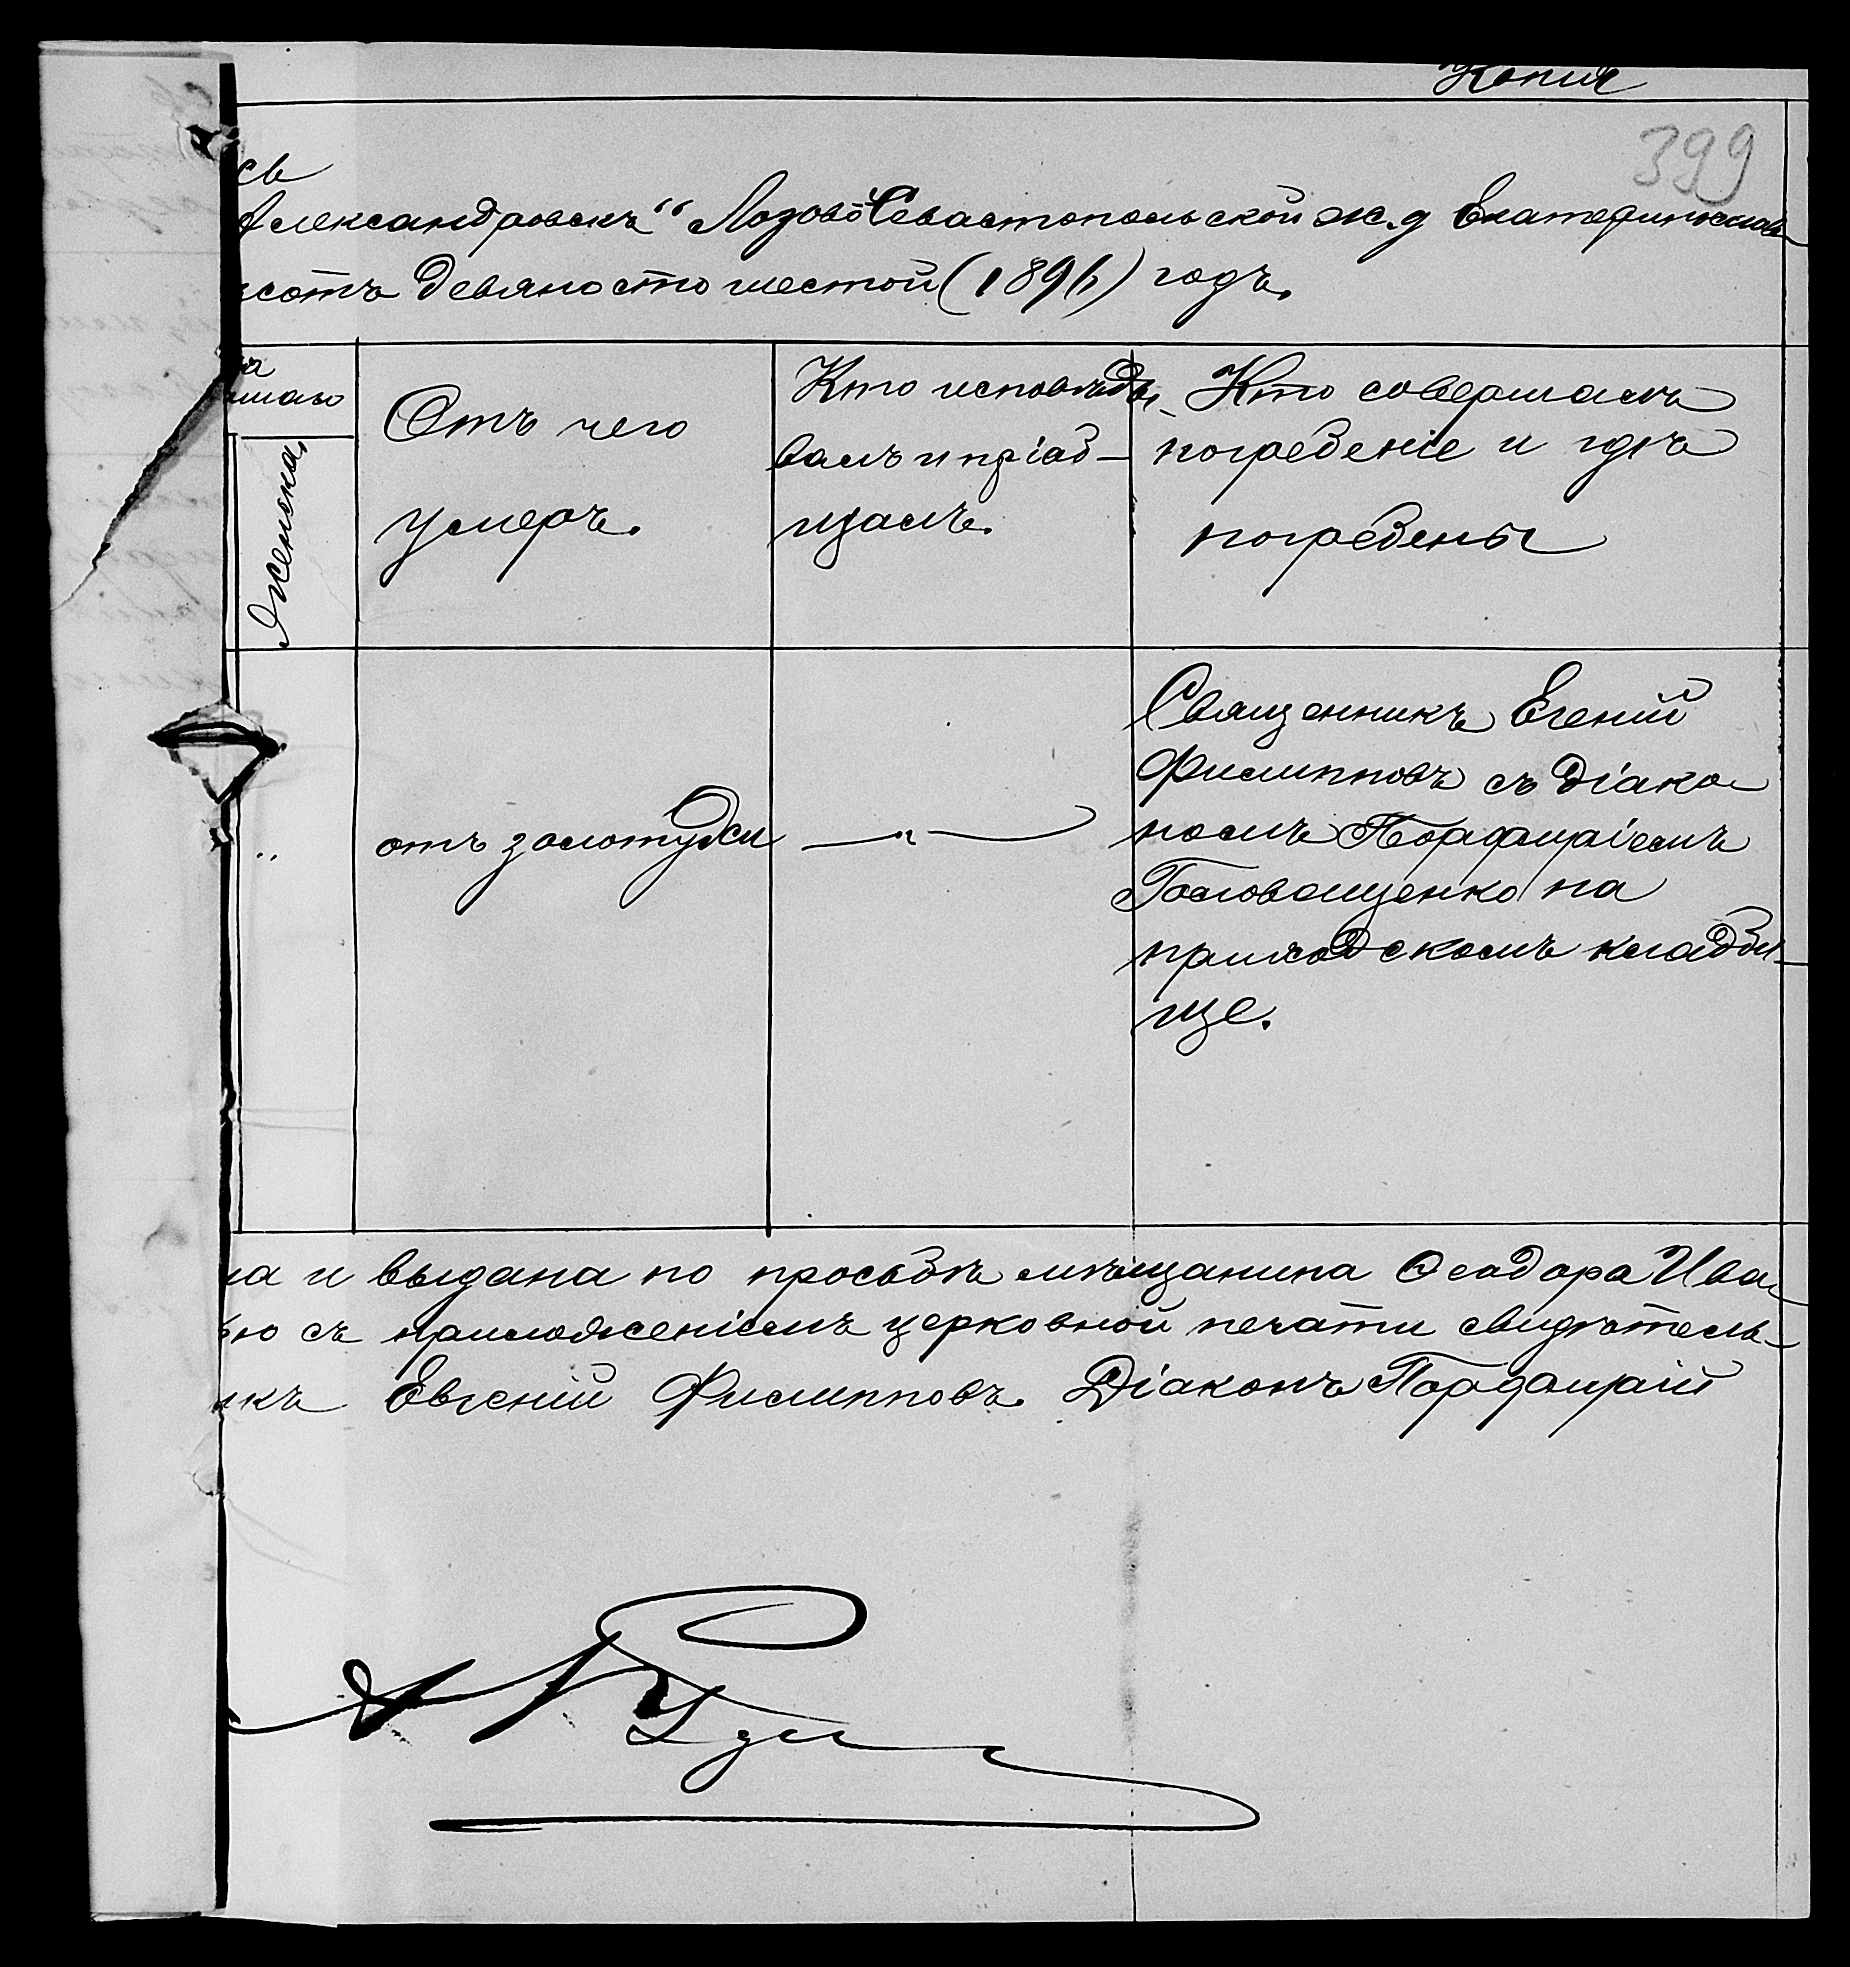 Копія
399
сь
Александровскъ" Лозово Севастопольской ж.д Екатеринослав-
сотъ девяносто шестой (1896) годъ.
Женска,
Отъ чего
умеръ.
Кто исповѣды-
валъ и пріоб-
щалъ.
Кто совершалъ
погребеніе и гдѣ
погребены
отъ золотухи
Священникъ Егеній
Филипповъ съ діако-
номъ Порфиріемъ
Головащенко на
приходскомъ кладби-
ще.
на и выдана по просьбѣ мѣщанина Ѳеодора Ива-
ью съ приложеніемъ церковной печати свидѣтель-
икъ Евгеній Филипповъ. Діаконъ Порфирій